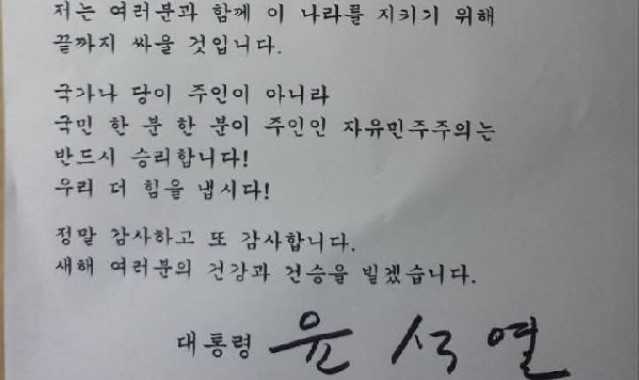 저는 여러분과 함께 이 나라를 지키기 위해
끝까지 싸울 것입니다.
국가나 당이 주인이 아니라
국민 한 분 한 분이 주인인 자유민주주의는
반드시 승리합니다!
우리 더 힘을 냅시다!
정말 감사하고 또 감사합니다.
새해 여러분의 건강과 건승을 빌겠습니다.
대통령 윤석열